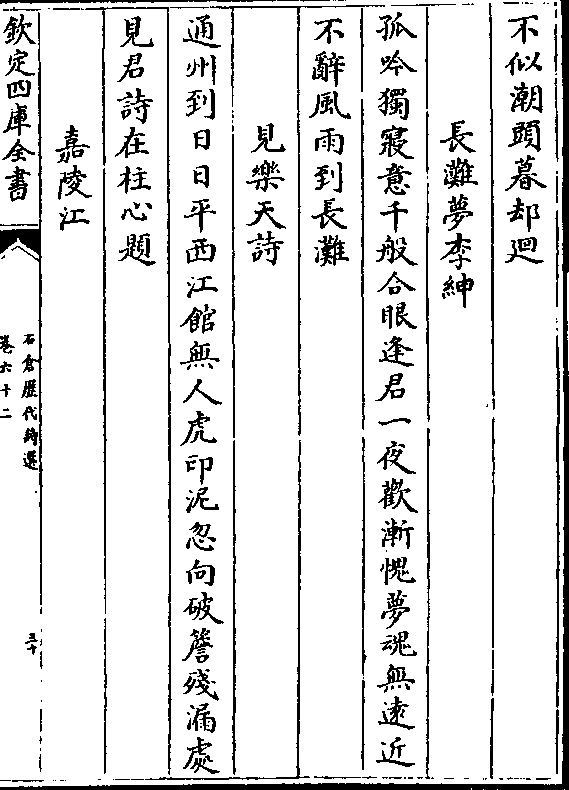 不似潮頭暮却迴
長灘夢李紳
孤吟獨寢意千般合眼逢君一夜歡漸愧夢魂無遠近
不辭風雨到長灘
見樂天詩
通州到日日平西江館無人虎印泥忽向破簷殘漏處
見君詩在柱心題
嘉陵江
欽定四庫全書
石倉歷代詩選
卷六十二
三十